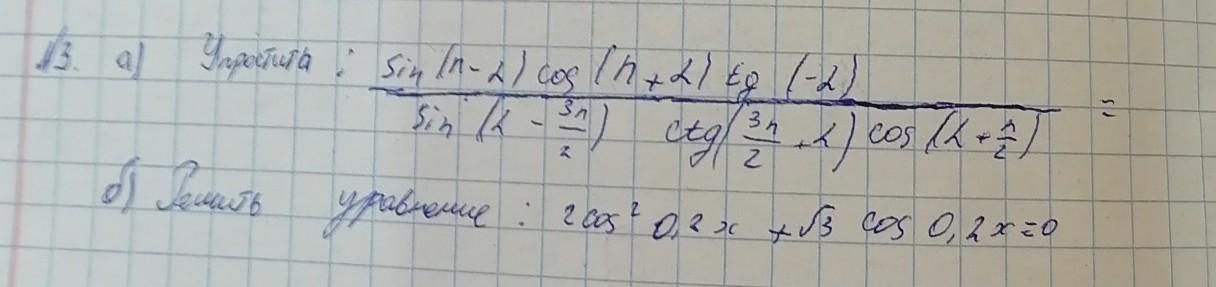 №3. а) Упростить : sin (π - α) cos (π + α) tg (-α)
sin (α - 3π/2) ctg (3π/2 + α) cos (α + π/2) =
б) Решить уравнение : 2cos² 0,2x + √3 cos 0,2x = 0